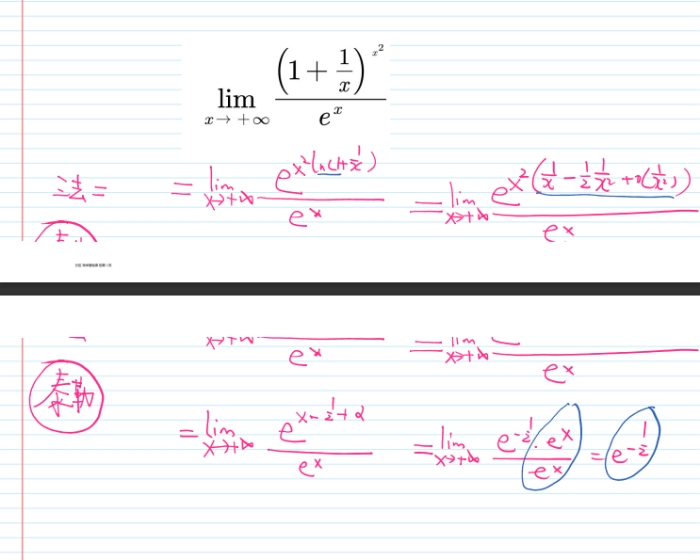 lim x→+∞ (1 + 1/x)^x² / e^x
法二 = lim x→+∞ e^(x² ln(1+1/x)) / e^x = lim x→+∞ e^(x²(1/x - 1/2 1/x² + o(1/x²))) / e^x
x→+∞ e^x = lim x→+∞ e^x
泰勒
= lim x→+∞ e^(x - 1/2 + α) / e^x = lim x→+∞ e^(-1/2) · e^x / e^x = e^(-1/2)